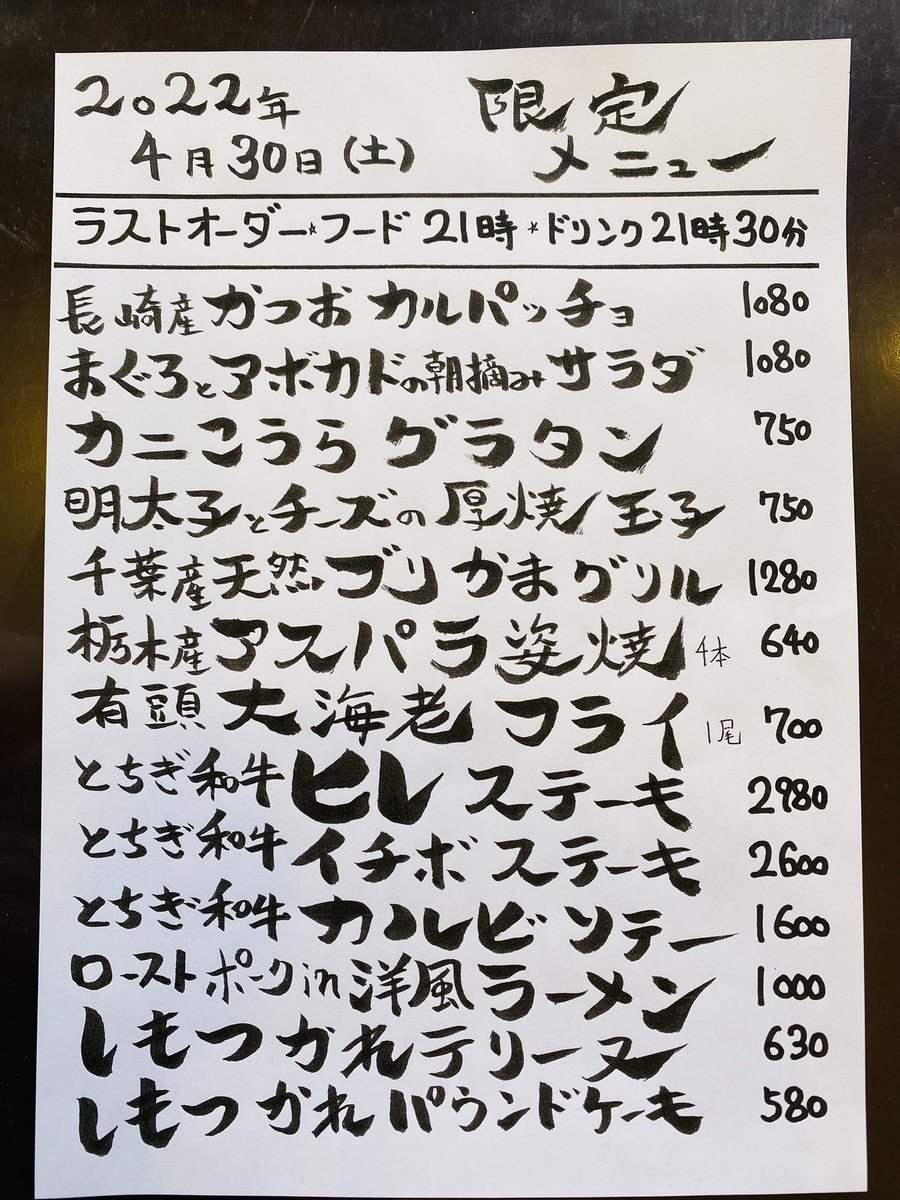 2022年 限定
4月30日(土) メニュー
ラストオーダー★フード 21時★ドリンク21時30分
長崎産かつおカルパッチョ 1080
まぐろとアボカドの朝摘みサラダ 1080
カニこうらグラタン 750
明太子とチーズの厚焼玉子 750
千葉産天然ブリかまグリル 1280
栃木産アスパラ姿焼 4本 640
有頭大海老フライ 1尾 700
とちぎ和牛ヒレステーキ 2980
とちぎ和牛イチボステーキ 2600
とちぎ和牛カルビソテー 1600
ローストポークin洋風ラーメン 1000
しもつかれテリーヌ 630
しもつかれパウンドケーキ 580